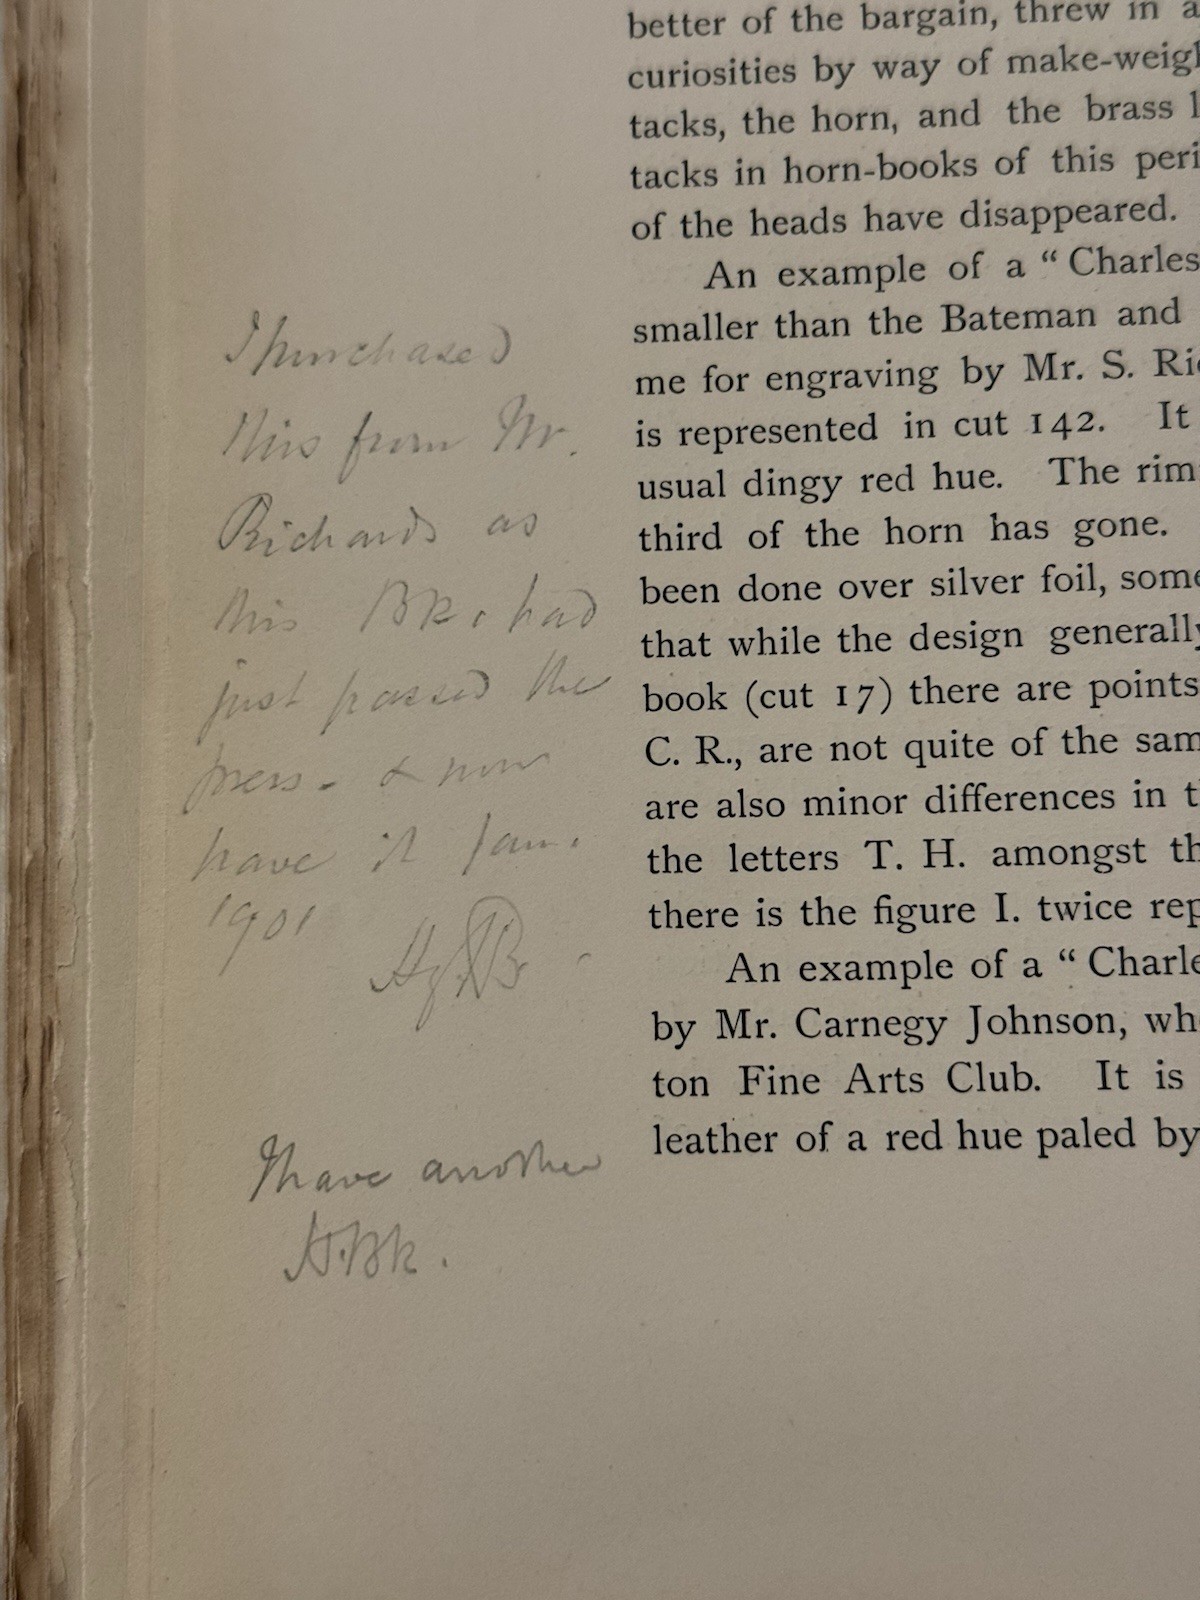 better of the bargain, threw in a
curiosities by way of make-weigh
tacks, the horn, and the brass l
tacks in horn-books of this peri
of the heads have disappeared.
An example of a “ Charles
smaller than the Bateman and
me for engraving by Mr. S. Ric
is represented in cut 142. It
usual dingy red hue. The rim
third of the horn has gone.
been done over silver foil, some
that while the design generally
book (cut 17) there are points
C. R., are not quite of the sam
are also minor differences in t
the letters T. H. amongst th
there is the figure I. twice rep
An example of a “ Charle
by Mr. Carnegy Johnson, wh
ton Fine Arts Club. It is
leather of a red hue paled by
I purchased
this from Mr.
Richards as
this Bk. had
just passed the
press - & now
have it Jan.
1901
I have another
H.Bk.